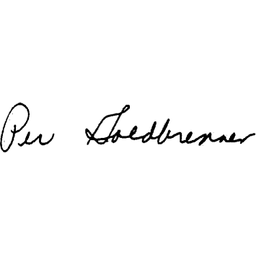 Per Goldbrenner